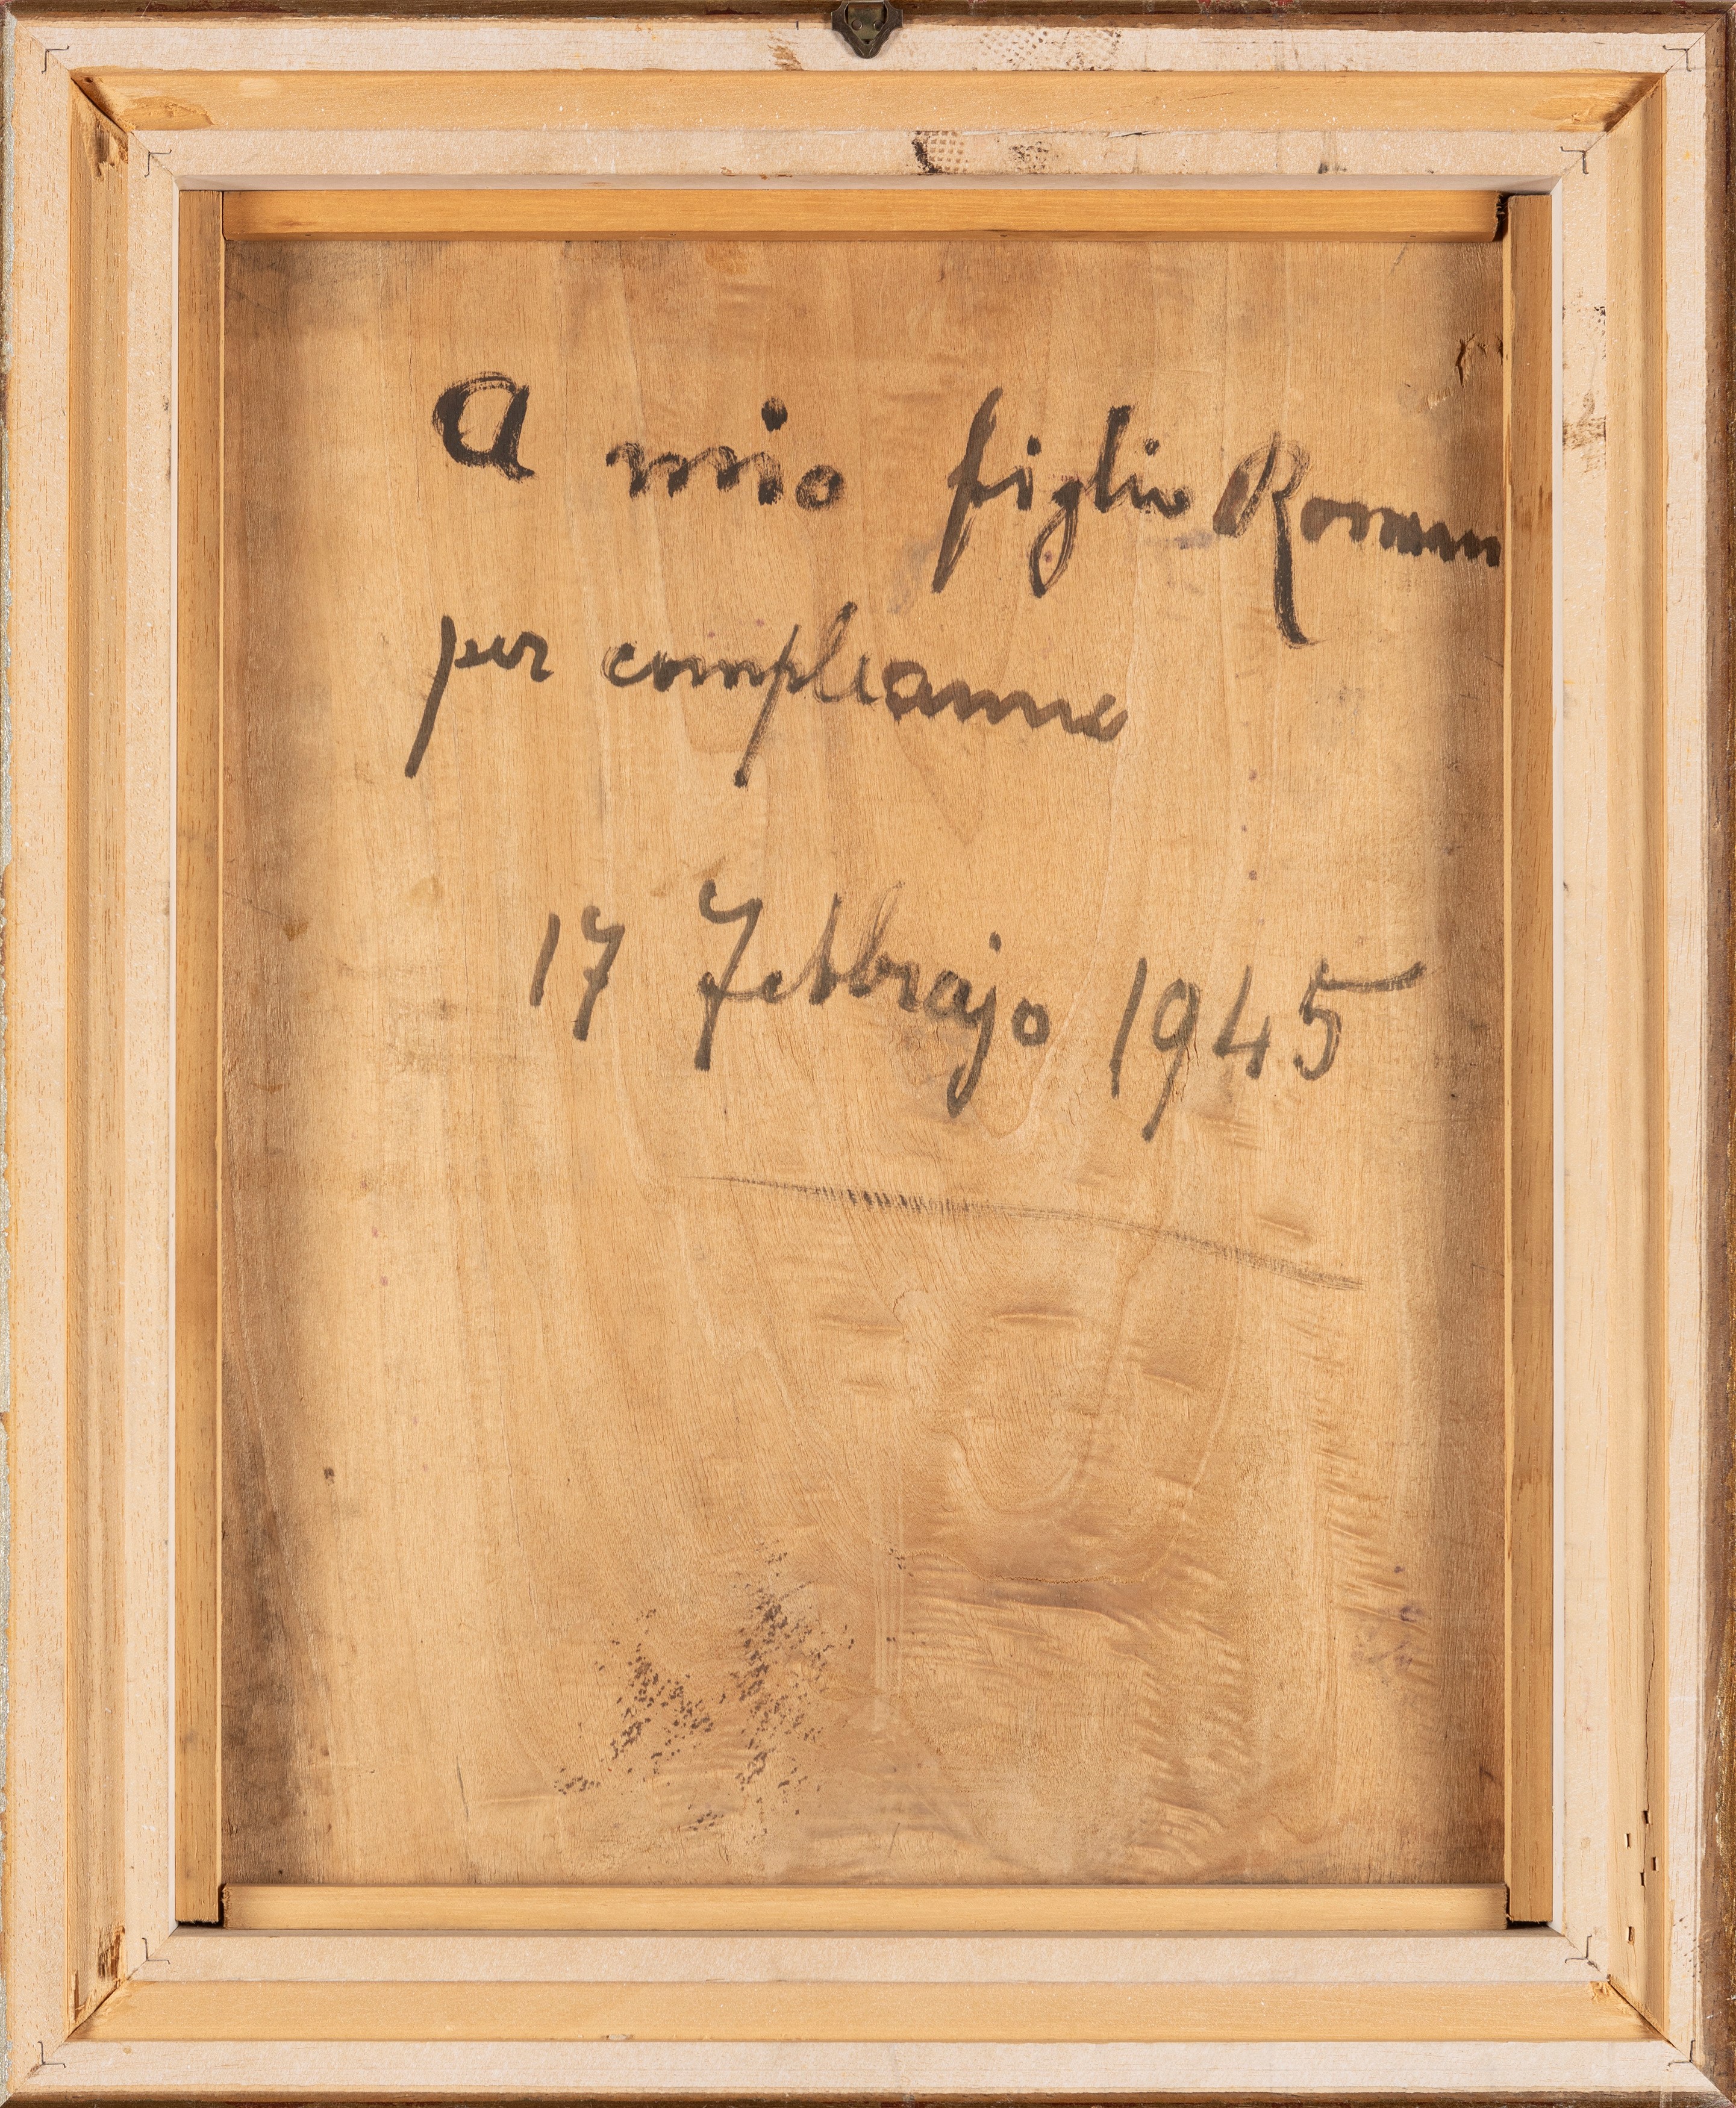 A mio figlio Roman
per compleanno
17 Febbrajo 1945